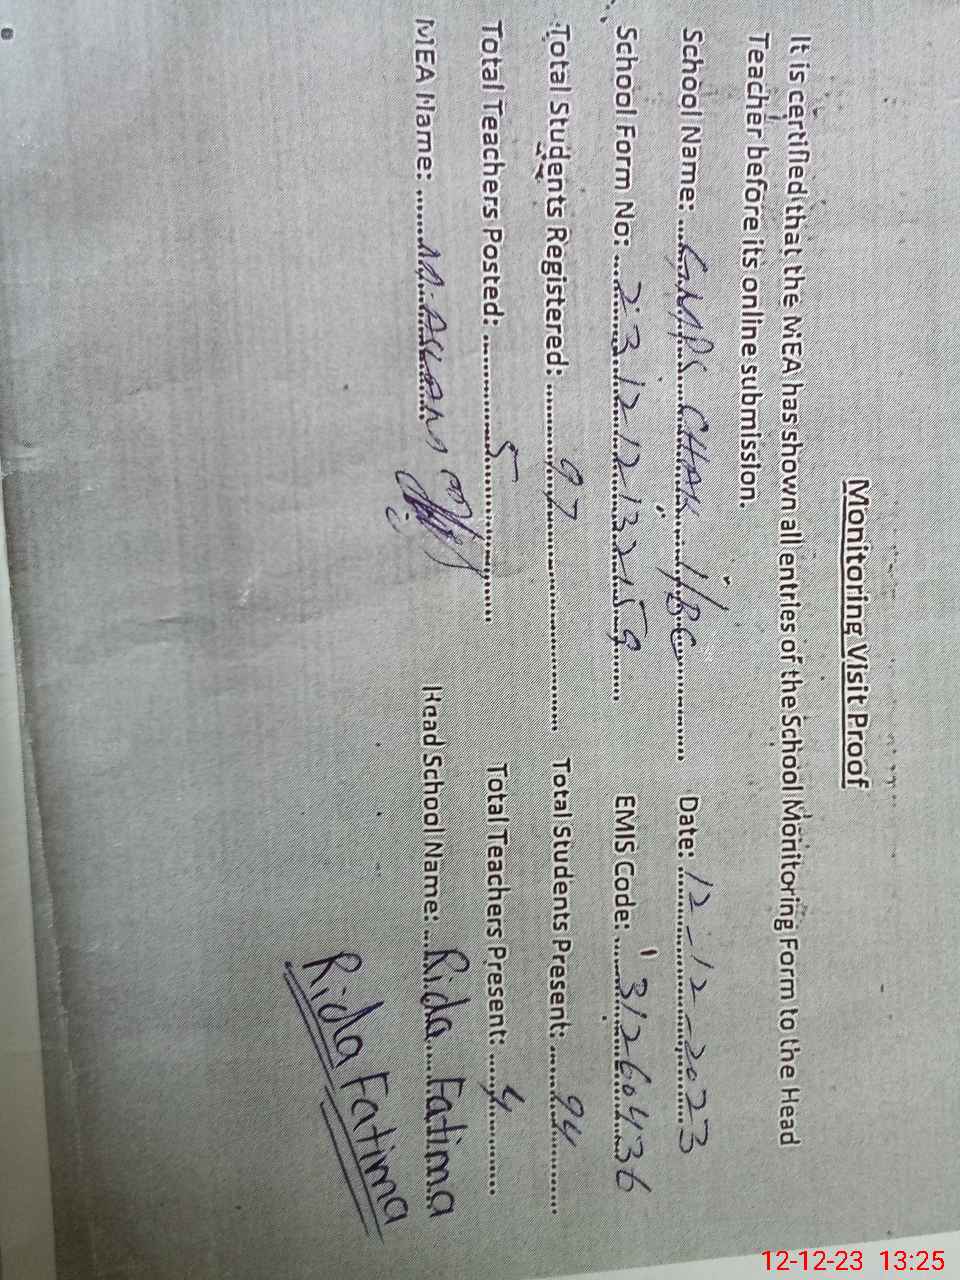 Monitoring Visit Proof
It is certified that the MEA has shown all entries of the School Monitoring Form to the Head
Teacher before its online submission.
School Name: GMPS CHAK 1/BC Date: 12-12-2023
School Form No: 231212132159 EMIS Code: 31260436
Total Students Registered: 97 Total Students Present: 94
Total Teachers Posted: 5 Total Teachers Present: 4
MEA Name: M. ASLAM Head School Name: Rida Fatima
Rida Fatima
12-12-23 13:25